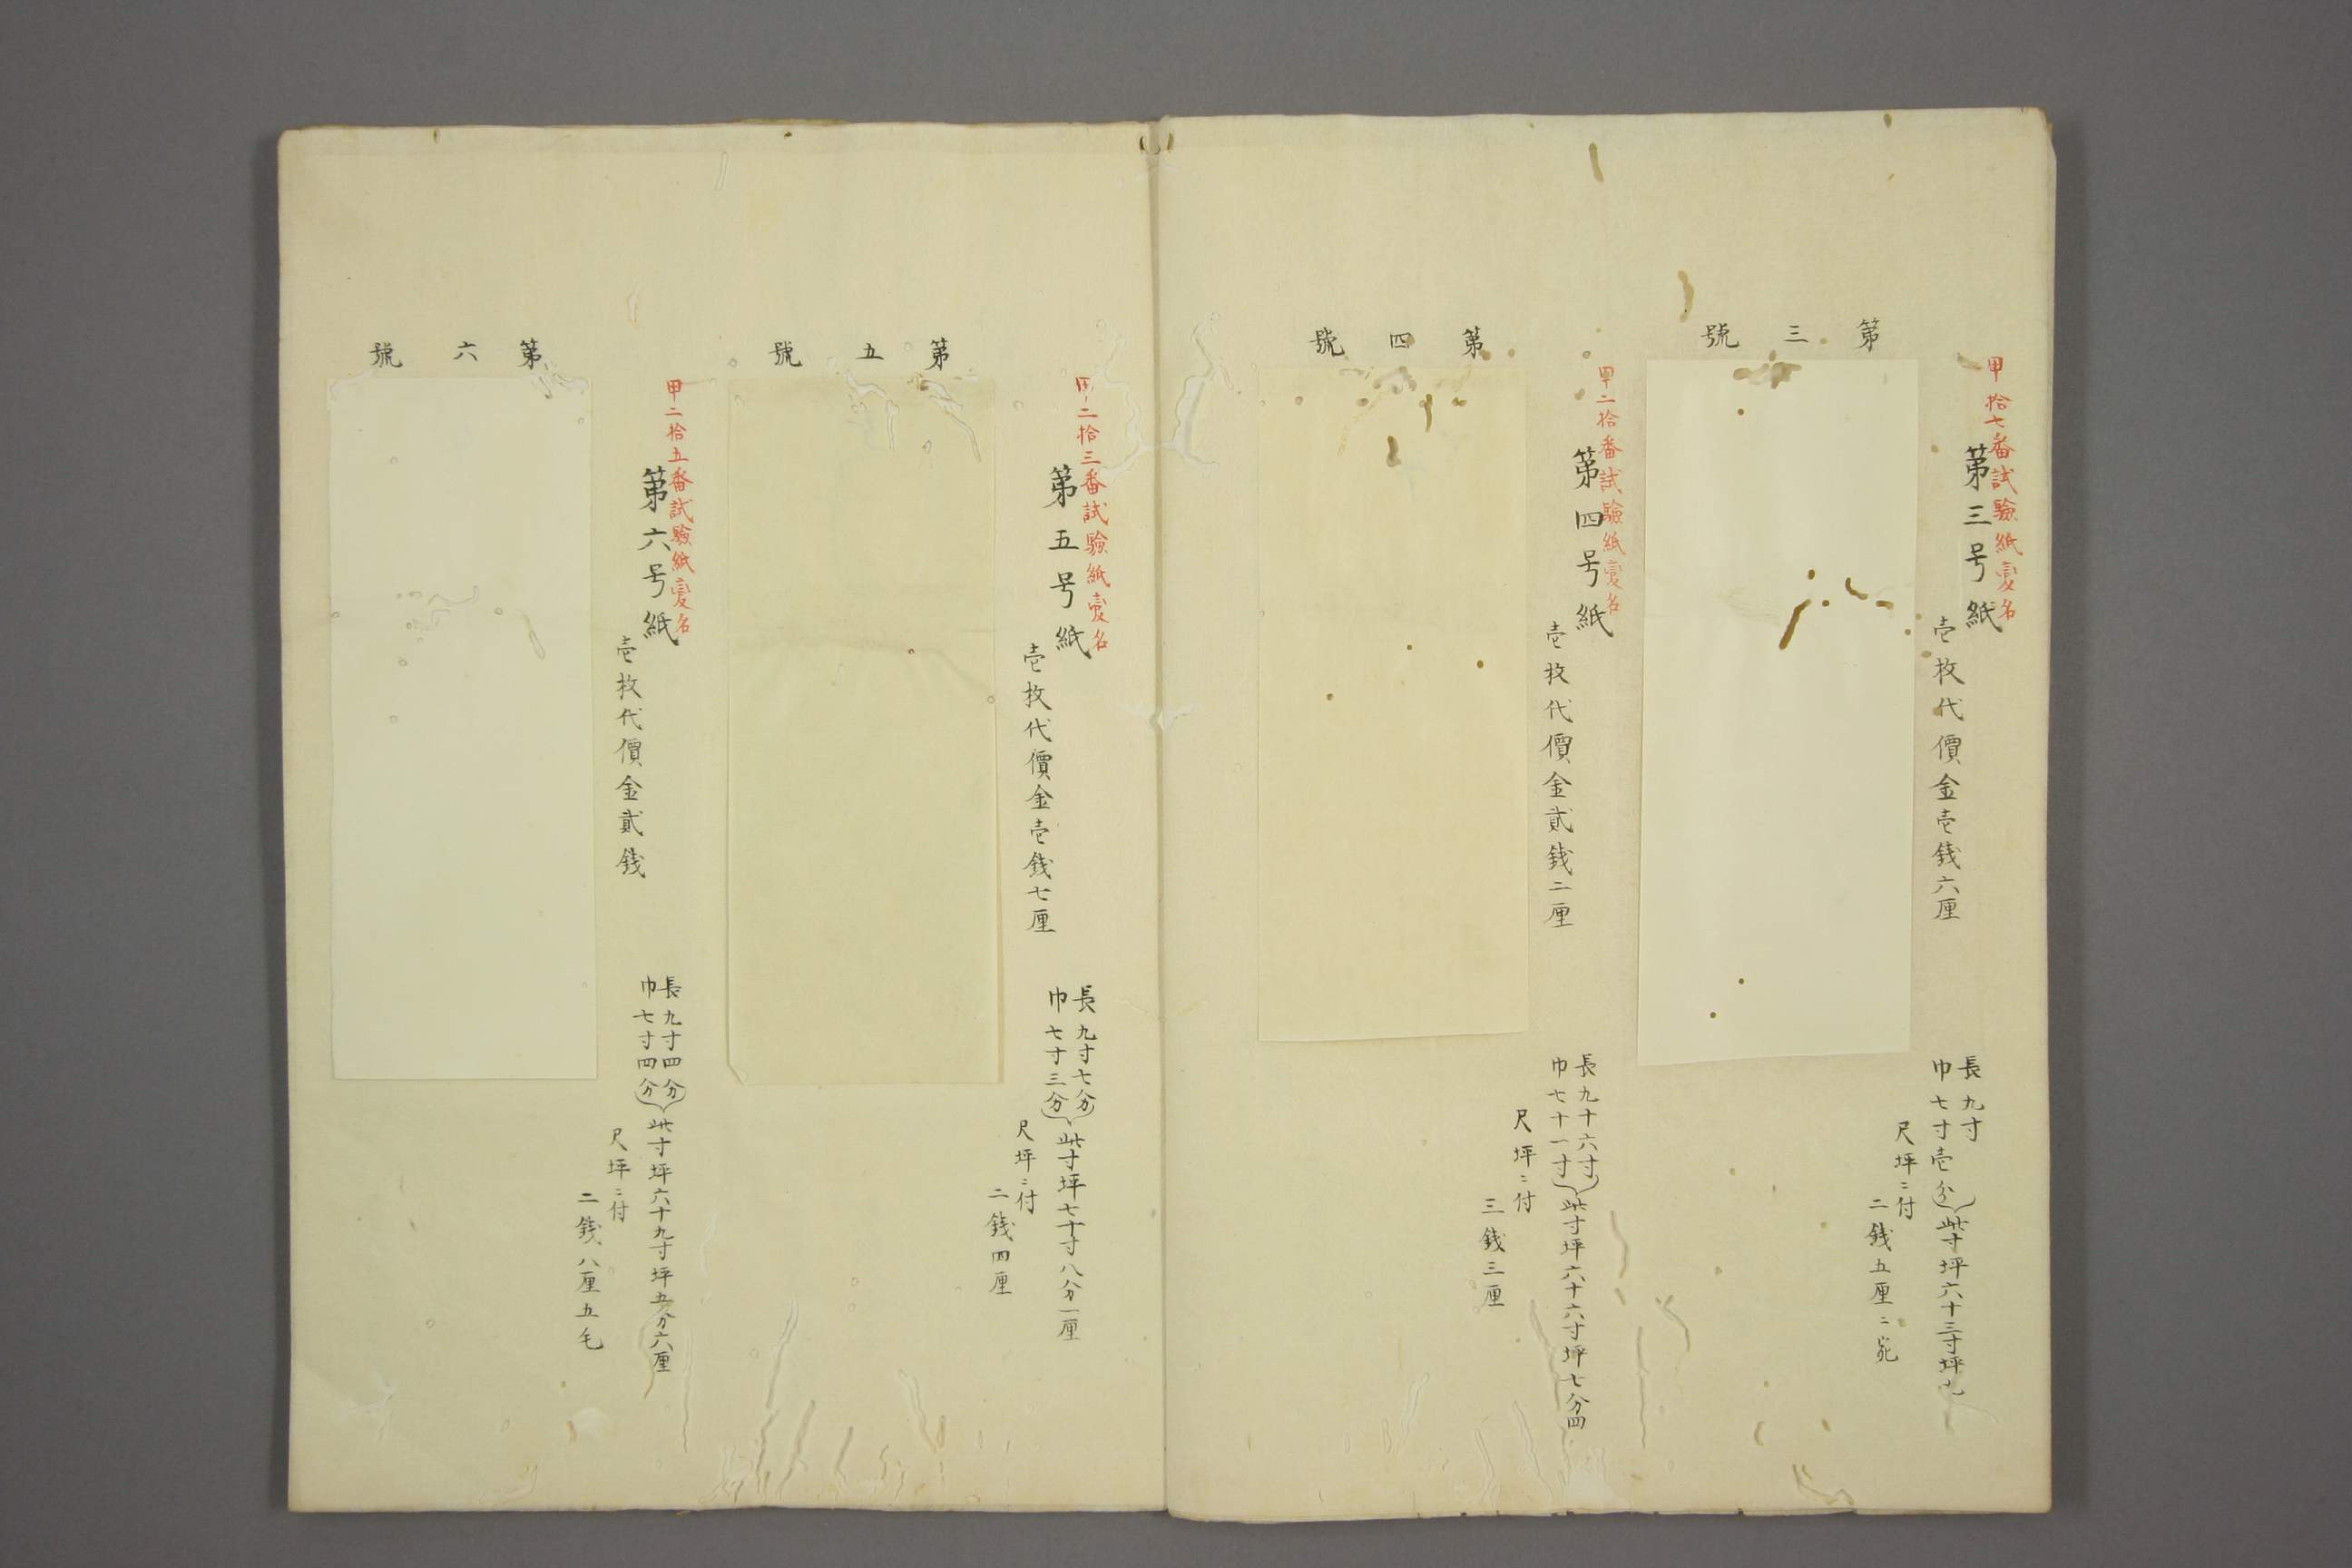 第三號
甲拾七番試驗紙變名
第三号紙
壱枚代價金壱錢六厘
長九寸
巾七寸壱分
此寸坪六十三寸坪九
尺坪ニ付
二錢五厘ニ宛
第四號
甲二拾番試驗紙變名
第四号紙
壱枚代價金貳錢二厘
長九十六寸
巾七十一寸
此寸坪六十六寸坪七分四
尺坪ニ付
三錢三厘
第五號
甲二拾三番試驗紙變名
第五号紙
壱枚代價金壱錢七厘
長九寸七分
巾七寸三分
此寸坪七十寸八分一厘
尺坪ニ付
二錢四厘
第六號
甲二拾五番試驗紙變名
第六号紙
壱枚代價金貳錢
長九寸四分
巾七寸四分
此寸坪六十九寸坪五分六厘
尺坪ニ付
二錢八厘五毛